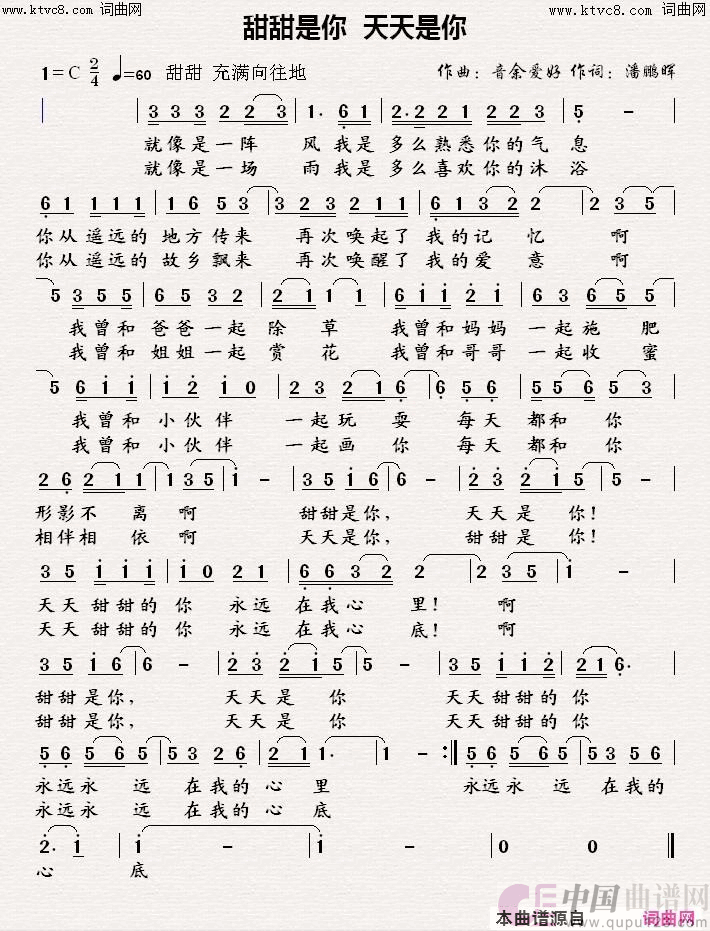 www.ktvc8.com 词曲网
www.ktvc8.com 词曲网
甜甜是你 天天是你
1=C 2/4 ♩=60 甜甜 充满向往地
作曲：音余爱好 作词：潘鹏晖
3 3 3 2 2 3 | 1· 6 1 | 2·2 2 1 2 2 3 | 5 - |
就像是一阵 风我是 多么熟悉你的气 息
就像是一场 雨我是 多么喜欢你的沐 浴
6 1 1 1 1 | 1 6 5 3 | 3 2 3 2 1 1 | 6 1 3 2 2 | 2 3 5 |
你从遥远的 地方传来 再次唤起了 我的记 忆 啊
你从遥远的 故乡飘来 再次唤醒了 我的爱 意 啊
5 3 5 5 | 6 5 3 2 | 2 1 1 | 6 1 1 2 1 | 6 3 6 5 |
我曾和 爸爸一起 除 草 我曾和妈妈 一起施 肥
我曾和 姐姐一起 赏 花 我曾和哥哥 一起收 蜜
5 6 1 1 | 1 2 1 0 | 2 3 2 1 6 | 6 5 6 | 5 5 6 5 3 |
我曾和 小伙伴 一起玩 耍 每天 都和 你
我曾和 小伙伴 一起画 你 每天 都和 你
2 6 2 1 | 1 3 5 | 1 - | 3 5 1 6 | 6 - | 2 3 2 1 5 | 5 - |
形影不 离啊 甜甜是你， 天天是 你！
相伴相 依啊 天天是你， 甜甜是 你！
3 5 1 1 1 | 1 0 2 1 | 6 6 3 2 2 | 2 - | 2 3 5 | 1 - |
天天甜甜的 你 永远 在我心 里！ 啊
天天甜甜的 你 永远 在我心 底！ 啊
3 5 1 6 | 6 - | 2 3 2 1 5 | 5 - | 5 5 1 1 2 | 2 1 6· |
甜甜是你， 天天是 你 天天甜甜的 你
甜甜是你， 天天是 你 天天甜甜的 你
5 6 5 6 5 | 5 3 2 6 | 2 1 1· | 1 - :‖ 5 6 5 6 5 | 5 3 5 6 |
永远永 远 在我的 心 里 永远永 远 在我的
永远永 远 在我的 心 底
2· 1 | 1 - | 1 - | 0 0 ‖
心 底
中国曲谱网
本曲谱源自
词曲网
www.qupu123.com